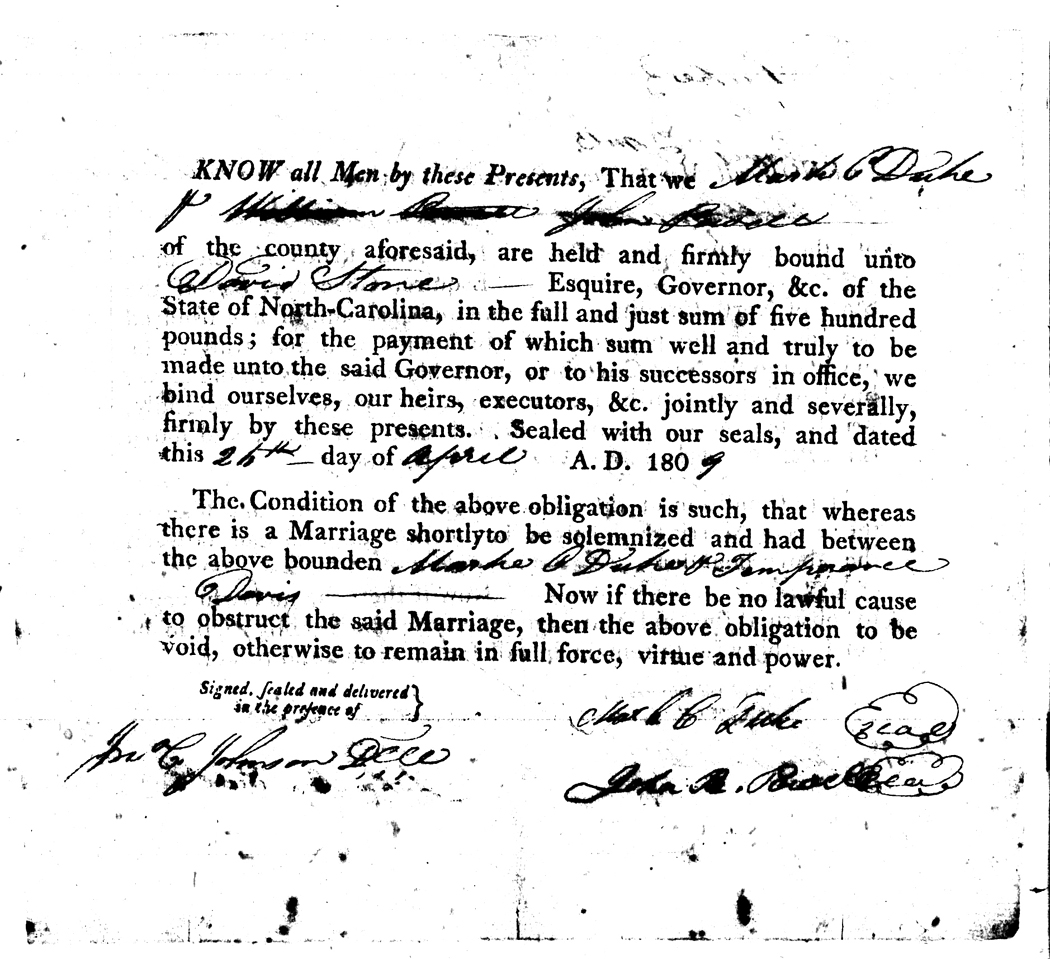 KNOW all Men by these Presents, That we Mark C Duke
& William John
of the county aforesaid, are held and firmly bound unto
David Stone Esquire, Governor, &c. of the
State of North-Carolina, in the full and just sum of five hundred
pounds; for the payment of which sum well and truly to be
made unto the said Governor, or to his successors in office, we
bind ourselves, our heirs, executors, &c. jointly and severally,
firmly by these presents. Sealed with our seals, and dated
this day of April A. D. 1809
The Condition of the above obligation is such, that whereas
there is a Marriage shortly to be solemnized and had between
the above bounden Marke C Duke & Temperance
Davis Now if there be no lawful cause
to obstruct the said Marriage, then the above obligation to be
void, otherwise to remain in full force, virtue and power.
Signed, sealed and delivered
in the presence of
Mark C Duke Seal
Jno C Johnson DCCC
John R. Seal